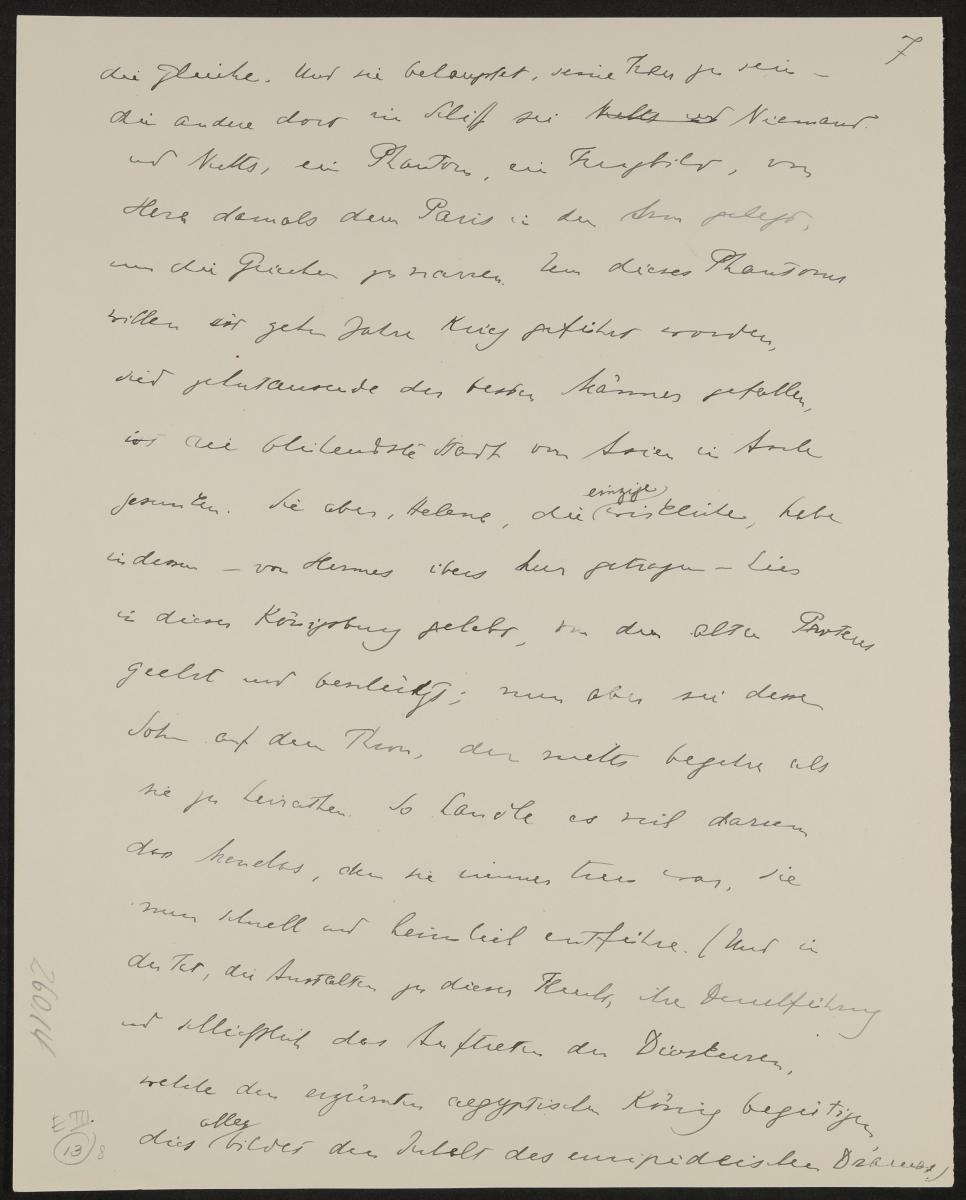 7
die gleiche. Und sie behauptet, seine Frau zu sein –
die andere dort im Schiff sei Nichts und Niemand
und Nichts, ein Phantom, ein Trugbild, von
Hera damals dem Paris in den Arm gelegt,
um die Griechen zu narren. Um dieses Phantoms
willen ist zehn Jahre Krieg geführt worden,
sind zehntausende der besten Männer gefallen,
ist die blühendste Stadt von Asien in Asche
gesunken. Sie aber, Helena, die einzige wirkliche, habe
indessen – von Hermes übers Meer getragen – hier
in dieser Königsburg gelebt, von dem alten Proteus
geehrt und beschützt; nun aber sei dessen
Sohn auf dem Thron, der nichts begehre als
sie zu heirathen. So handle es sich darum
dass Menelas, dem sie immer treu war, sie
nun schnell und heimlich entführe. (Und in
der Tat, die Anstalten zu dieser Flucht, ihre Durchführung
und schliesslich das Auftreten der Dioskuren,
welche den erzürnten aegyptischen König begütigen,
dies alles bildet den Inhalt des euripideischen Dramas.)
26014
E III.
13
8